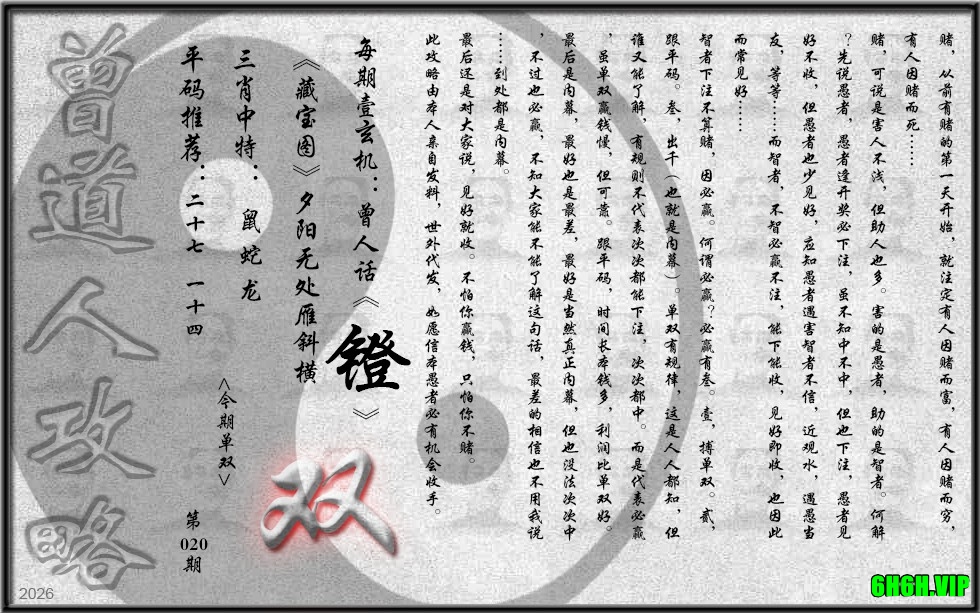 赌，从前有赌的第一天开始，就注定有人因赌而富，有人因赌而穷，
有人因赌而死……
赌，可说是害人不浅，但助人也多。害的是愚者，助的是智者。何解
？先说愚者，愚者逢开奖必下注，虽不知中不中，但也下注，愚者见
好不收，但愚者也少见好，应知愚者遇害智者不信，近观水，遇愚当
友，等等……而智者，不智必赢不注，能下能收，见好即收，也因此
而常见好……
智者下注不算赌，因必赢。何谓必赢？必赢有叁。壹，搏单双。贰，
跟平码。叁，出千（也就是内幕）。单双有规律，这是人人都知，但
谁又能了解，有规则不代表次次都能下注，次次都中。而是代表必赢
，虽单双赢钱慢，但可靠。跟平码，时间长本钱多，利润比单双好。
最后是内幕，最好也是最差，最好是当然真正内幕，但也没法次次中
，不过也必赢，不知大家能不能了解这句话，最差的相信也不用我说
……到处都是内幕。
最后还是对大家说，见好就收。不怕你赢钱，只怕你不赌。
此攻略由本人亲自发料，世外代发，如愿信本愚者必有机会收手。
每期壹玄机：曾人话《镫》
《藏宝图》夕阳无处雁斜横
三肖中特：鼠蛇龙
平码推荐：二十七 一十四
<今期单双>
双
第
020
期
曾道人攻略
2026
6H6H.VIP